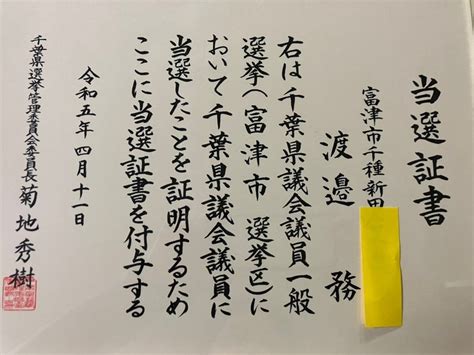 当選証書
富津市千種新田
渡邉務
右は千葉県議会議員一般
選挙(富津市 選挙区)に
おいて千葉県議会議員に
当選したことを証明するため
ここに当選証書を付与する
令和五年四月十一日
千葉県選挙管理委員会委員長 菊地秀樹